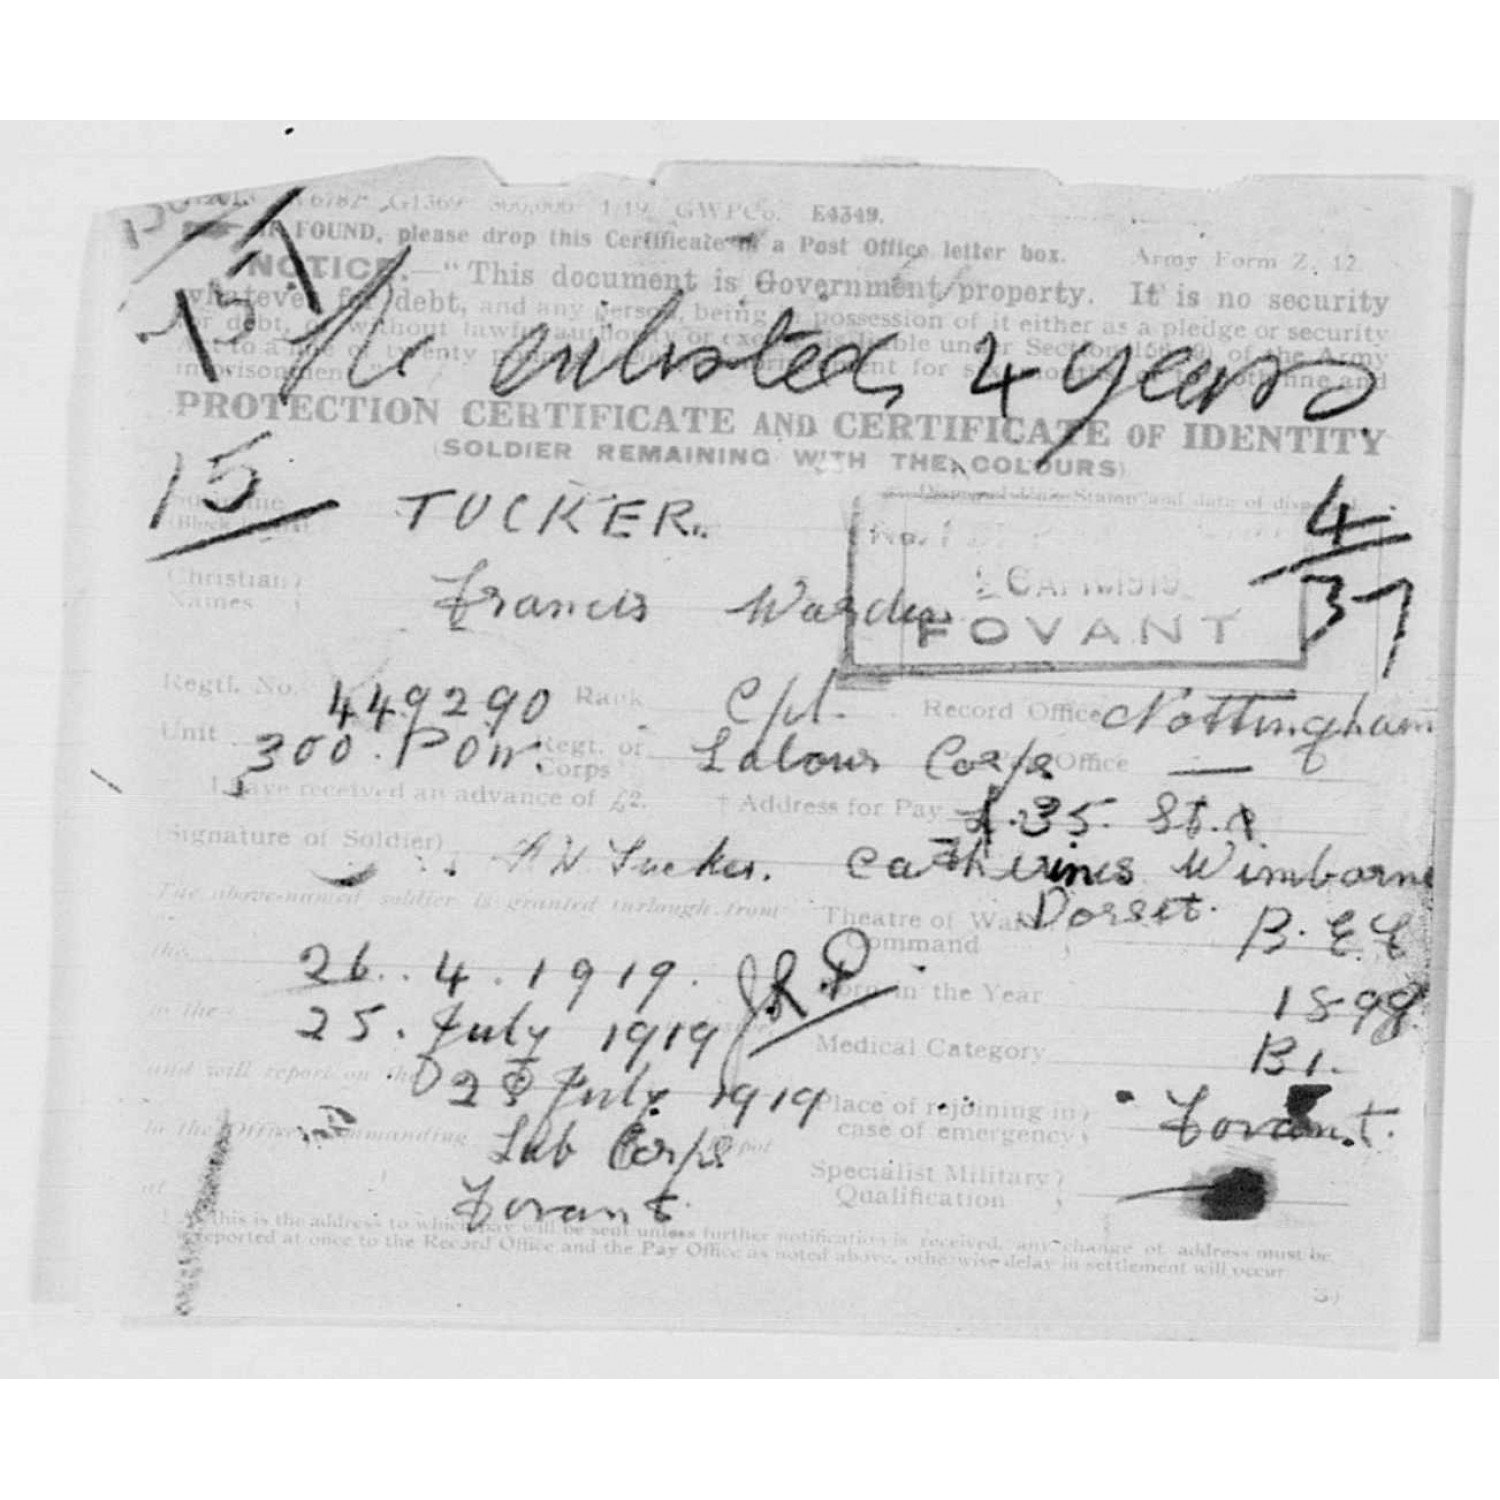 E4349.
IF FOUND, please drop this Certificate in a Post Office letter box. Army Form Z. 12.
NOTICE.—"This document is Government property. It is no security
whatever for debt, and any person, being possession of it either as a pledge or security
for debt, or without lawful authority or excuse is liable under Section 156 (9) of the Army
Act to a fine of twenty
imprisonment
enlisted 4 years
PROTECTION CERTIFICATE AND CERTIFICATE OF IDENTITY
(SOLDIER REMAINING WITH THE COLOURS)
15 TUCKER.
4/37
Christian Names Francis Warden
FOVANT
Regtl. No. 449290 Rank Cpl. Record Office Nottingham
Unit 300. POW. Regt. or Corps Labour Corps Office —
I have received an advance of £2. † Address for Pay 35. St.
(Signature of Soldier) Tucker. Catherines Wimborne
Dorset.
The above-named soldier is granted furlough from Theatre of War Command B.E.F
the 26.4.1919.
Born in the Year 1899
to the 25. July 1919
Medical Category B1.
and will report on the July 1919
Place of rejoining in case of emergency Fovant.
to the Officer Commanding Lab Corps
Specialist Military Qualification
at Fovant
this is the address to which pay will be sent unless further notification is received, any change of address must be
reported at once to the Record Office and the Pay Office as noted above, otherwise delay in settlement will occur